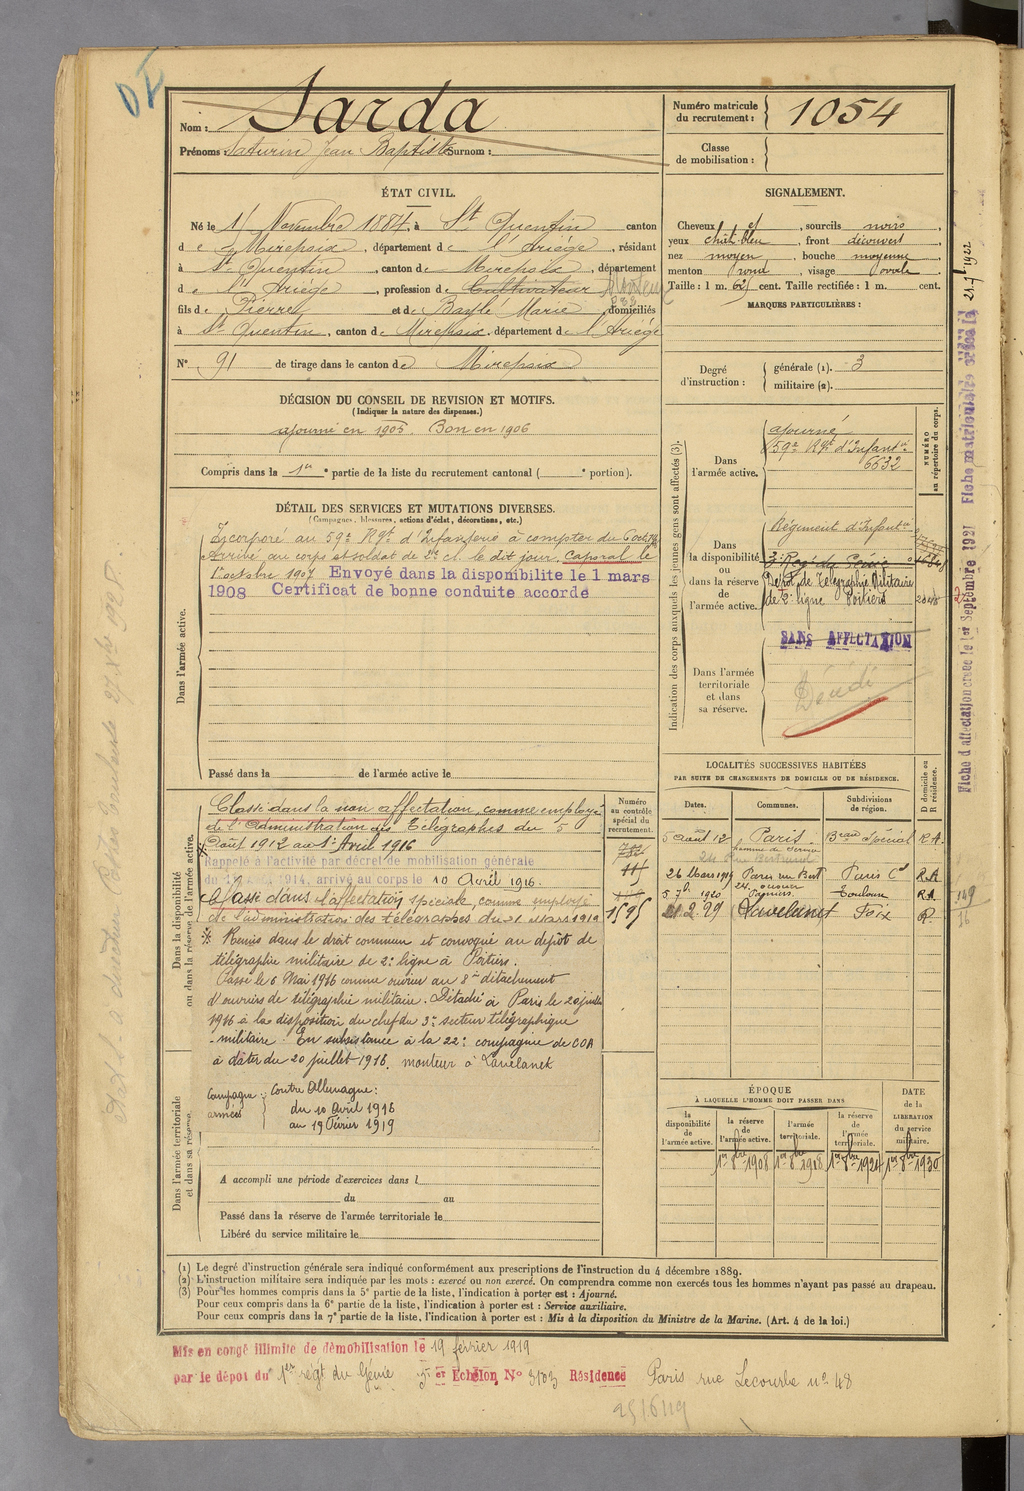 Nom : Sarda
Prénoms : Saturin Jean Baptiste Surnom :
Numéro matricule du recrutement : 1054
Classe de mobilisation :
ÉTAT CIVIL.
Né le 1er Novembre 1884, à St Quentin canton
de Mirepoix, département de l'Ariège, résidant
à St Quentin, canton de Mirepoix, département
de l'Ariège, profession de Cultivateur Monteur
fils de Pierre et de Bayle Marie, domiciliés
à St Quentin, canton de Mirepoix, département de l'Ariège
N° 91 de tirage dans le canton de Mirepoix
SIGNALEMENT.
Cheveux et, sourcils noirs,
yeux chât. bleu, front découvert,
nez moyen, bouche moyenne,
menton rond, visage ovale,
Taille : 1 m. 62 cent. Taille rectifiée : 1 m. cent.
MARQUES PARTICULIÈRES :
Degré d'instruction : générale (1). 3
militaire (2).
DÉCISION DU CONSEIL DE REVISION ET MOTIFS.
(Indiquer la nature des dispenses.)
ajourné en 1905. Bon en 1906
Compris dans la 1re partie de la liste du recrutement cantonal ( portion).
DÉTAIL DES SERVICES ET MUTATIONS DIVERSES.
(Campagnes, blessures, actions d'éclat, décorations, etc.)
Dans l'armée active.
Incorporé au 59e Rgt d'Infanterie à compter du 6 oct.
Arrivé au corps et soldat de 2e cl. le dit jour, caporal le
1er octobre 1907 Envoyé dans la disponibilite le 1 mars
1908 Certificat de bonne conduite accordé
Passé dans la de l'armée active le
Indication des corps auxquels les jeunes gens sont affectés (3).
NUMÉRO au répertoire du corps.
Dans l'armée active.
ajourné
59e Rgt d'Infantie
6632
Dans la disponibilité ou dans la réserve de l'armée active.
Régiment d'Infantie
Dépot de Télégraphie Militaire
de 2e ligne Poitiers
SANS AFFECTATION
Dans l'armée territoriale et dans sa réserve.
Décédé
Dans la disponibilité ou dans la réserve de l'armée active.
Classé dans la non affectation, comme employé
de l'administration des Télégraphes du 5
Août 1912 au 1er Avril 1916
Rappelé à l'activité par décret de mobilisation générale
du 1914, arrivé au corps le 10 Avril 1916.
Classé dans l'affectation spéciale, comme employé
de l'administration des télégraphes du 21 mars 1919
Remis dans le droit commun et convoqué au depôt de
télégraphie militaire de 2e ligne à Poitiers.
Passé le 6 Mai 1916 comme ouvrier au 8e détachement
d'ouvriers de télégraphie militaire. Détaché à Paris le 20 juillet
1916 à la disposition du chef du 3e secteur télégraphique
militaire. En subsistance à la 22e compagnie de COA
à dater du 20 juillet 1916. monteur à Lavelanet
Campagne : Contre Allemagne :
armées du 10 avril 1916
au 19 Février 1919
Numéro au contrôle spécial du recrutement.
115
1595
LOCALITÉS SUCCESSIVES HABITÉES
PAR SUITE DE CHANGEMENTS DE DOMICILE OU DE RÉSIDENCE.
Dates. Communes. Subdivisions de région. D domicile ou R résidence.
5 Août 12 Paris Beau Spécial R.A.
26 Mars 1919 Paris Paris Cal R.A
5 7b. 1920 Pamiers Toulouse R.A
21.2.29 Lavelanet Foix R.
ÉPOQUE
À LAQUELLE L'HOMME DOIT PASSER DANS
la disponibilité de l'armée active. la réserve de l'armée active. l'armée territoriale. la réserve de l'armée territoriale.
DATE de la LIBERATION du service militaire.
1er 8bre 1908 1er 8bre 1918 1er 8bre 1924 1er 8bre 1930
Dans l'armée territoriale et dans sa réserve.
A accompli une période d'exercices dans l
du au
Passé dans la réserve de l'armée territoriale le
Libéré du service militaire le
(1) Le degré d'instruction générale sera indiqué conformément aux prescriptions de l'instruction du 4 décembre 1889.
(2) L'instruction militaire sera indiquée par les mots : exercé ou non exercé. On comprendra comme non exercés tous les hommes n'ayant pas passé au drapeau.
(3) Pour les hommes compris dans la 5e partie de la liste, l'indication à porter est : Ajourné.
Pour ceux compris dans la 6e partie de la liste, l'indication à porter est : Service auxiliaire.
Pour ceux compris dans la 7e partie de la liste, l'indication à porter est : Mis à la disposition du Ministre de la Marine. (Art. 4 de la loi.)
Mis en congé illimité de démobilisation le 19 février 1919
par le dépot du 1er régt du Génie 3e Echelon, N° 3103 Résidence Paris rue Lecourbe no 48
Fiche d'affectation créée le 1er Septembre 1921 Fiche matriculaire